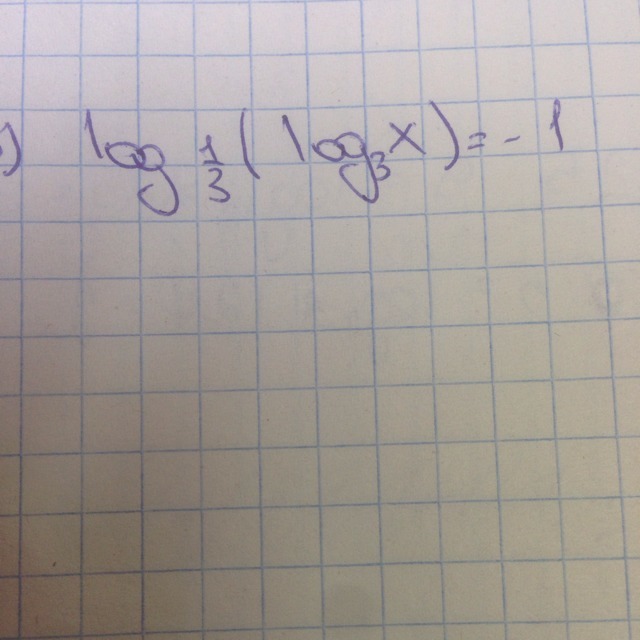 ) log 1/3 (log₃x) = -1